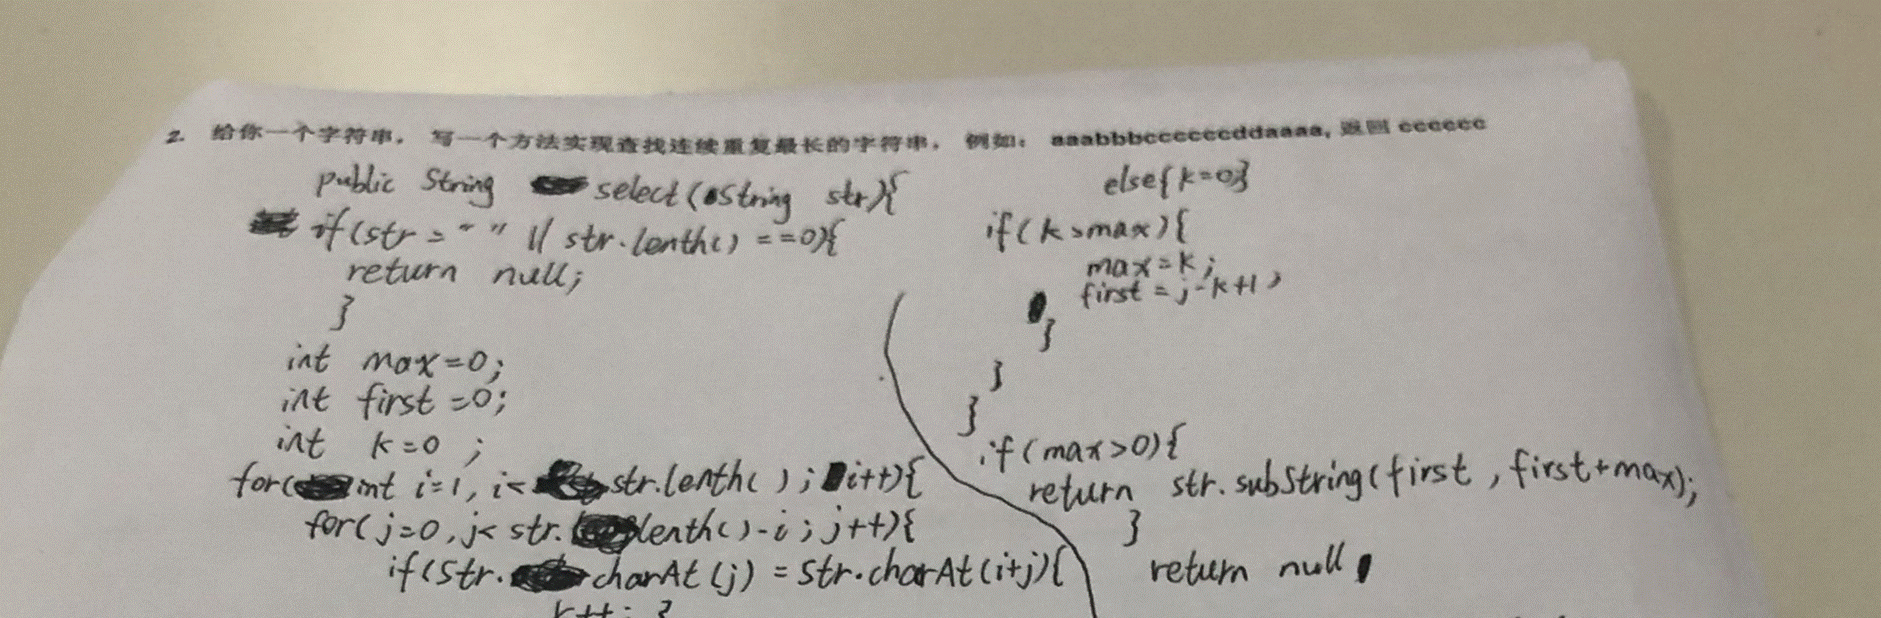 2. 给你一个字符串， 写一个方法实现查找连续重复最长的字符串， 例如： aaabbbccccccddaaaa, 返回 cccccc
public String select(String str){
if(str = " " || str.lenth() == 0){
return null;
}
int max=0;
int first =0;
int k=0 ;
for(int i=1, i< str.lenth( ) ; i++){
for( j=0 , j< str.lenth()-i ; j++){
if(Str.charAt (j) = Str.charAt (i+j){
k++; }
else{ k=0}
if( k>max ){
max=k;
first = j-k+1 ;
}
}
}
if(max>0){
return str.subString(first , first+max);
}
return null